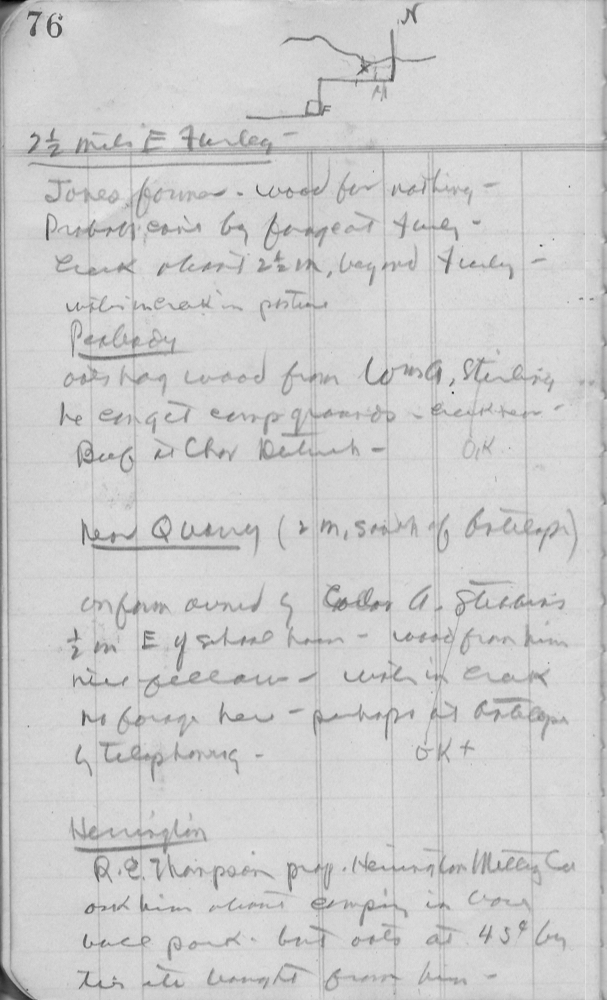 76
N
F
2 1/2 miles E Furley -
Jones farmer - wood for nothing -
Probab by forage at Furley -
Creek about 2 1/2 m, beyond Furley -
water in creek in pasture
Peabody
oats hay wood from Wm A. Sterling
he can get camp grounds - creek near -
Beef at Chas -
O.K
Near Quarry (2 m, south of Antelope)
on farm owned by A. Stebbins
1/2 mi E of school house - wood from him
nice fellow - water in creek
no forage here - perhaps at Antelope
by telephoning -
O-K +
Herington
R.E. Thompson prop. Herington Milling Co
ask him about camping in
park - but oats at 45¢ bu
bought from him -